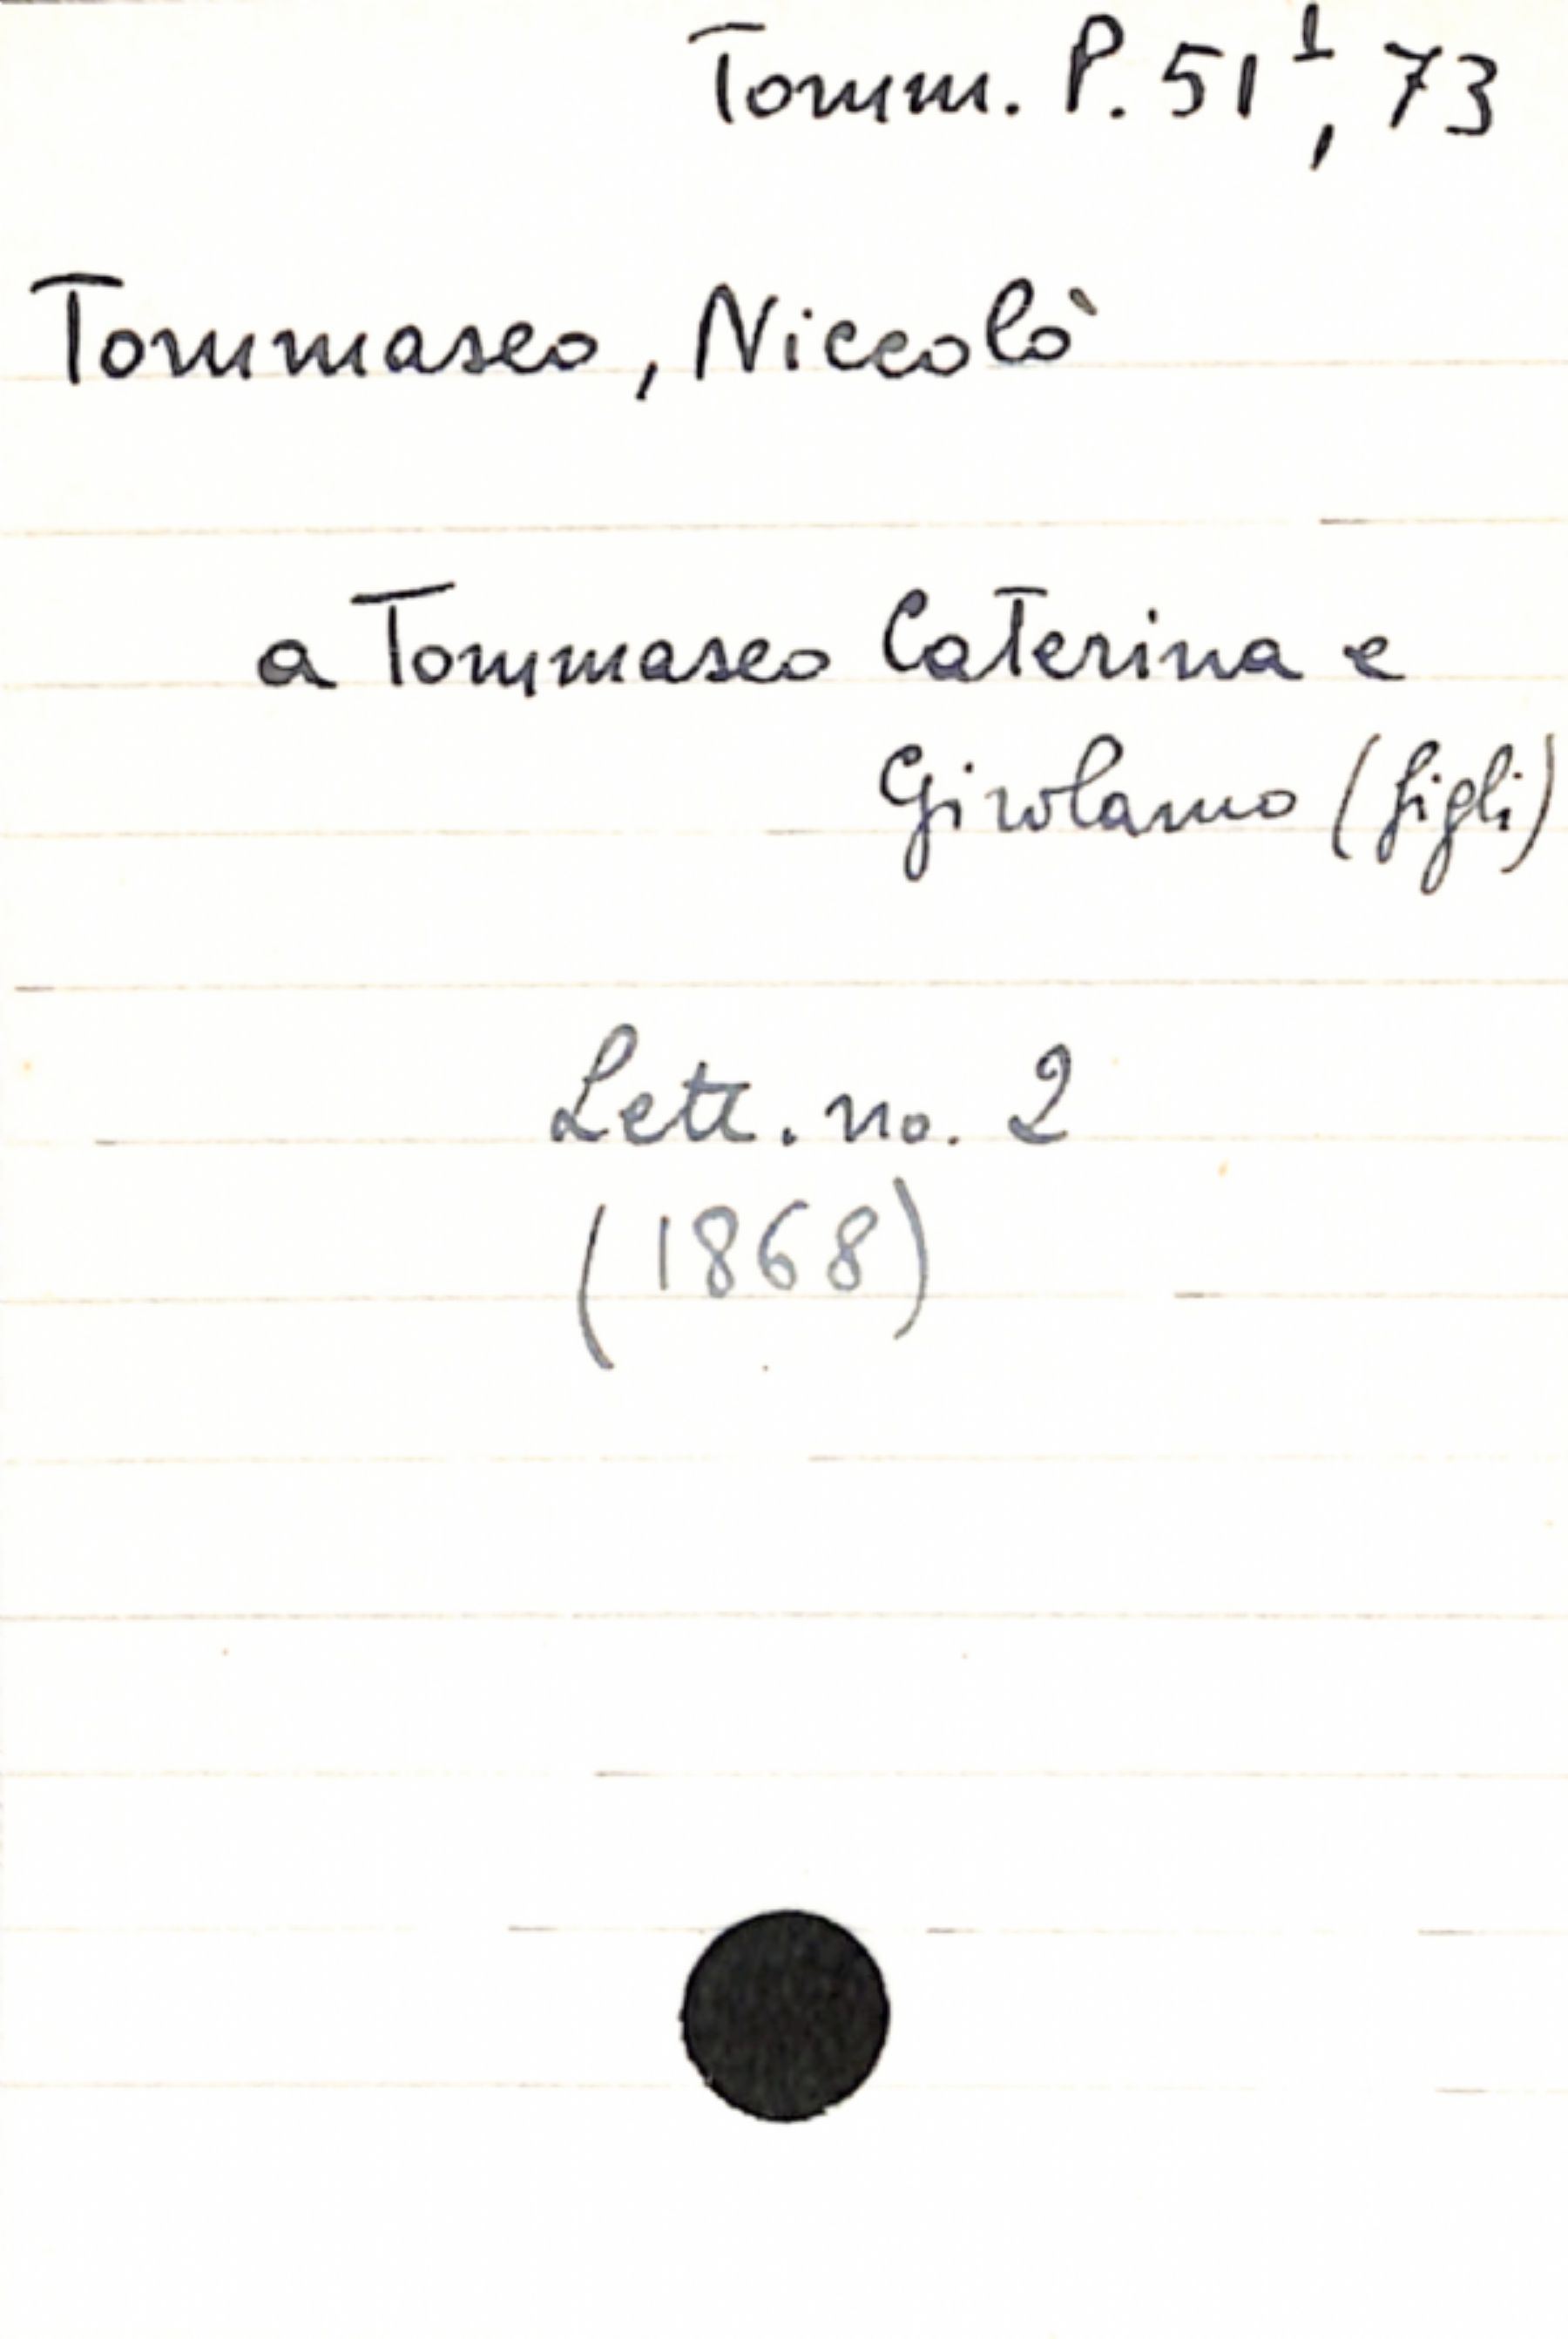 Tomm. P. 51¹, 73
Tommaseo, Niccolò
a Tommaseo Caterina e
Girolamo (figli)
Lett. no. 2
(1868)